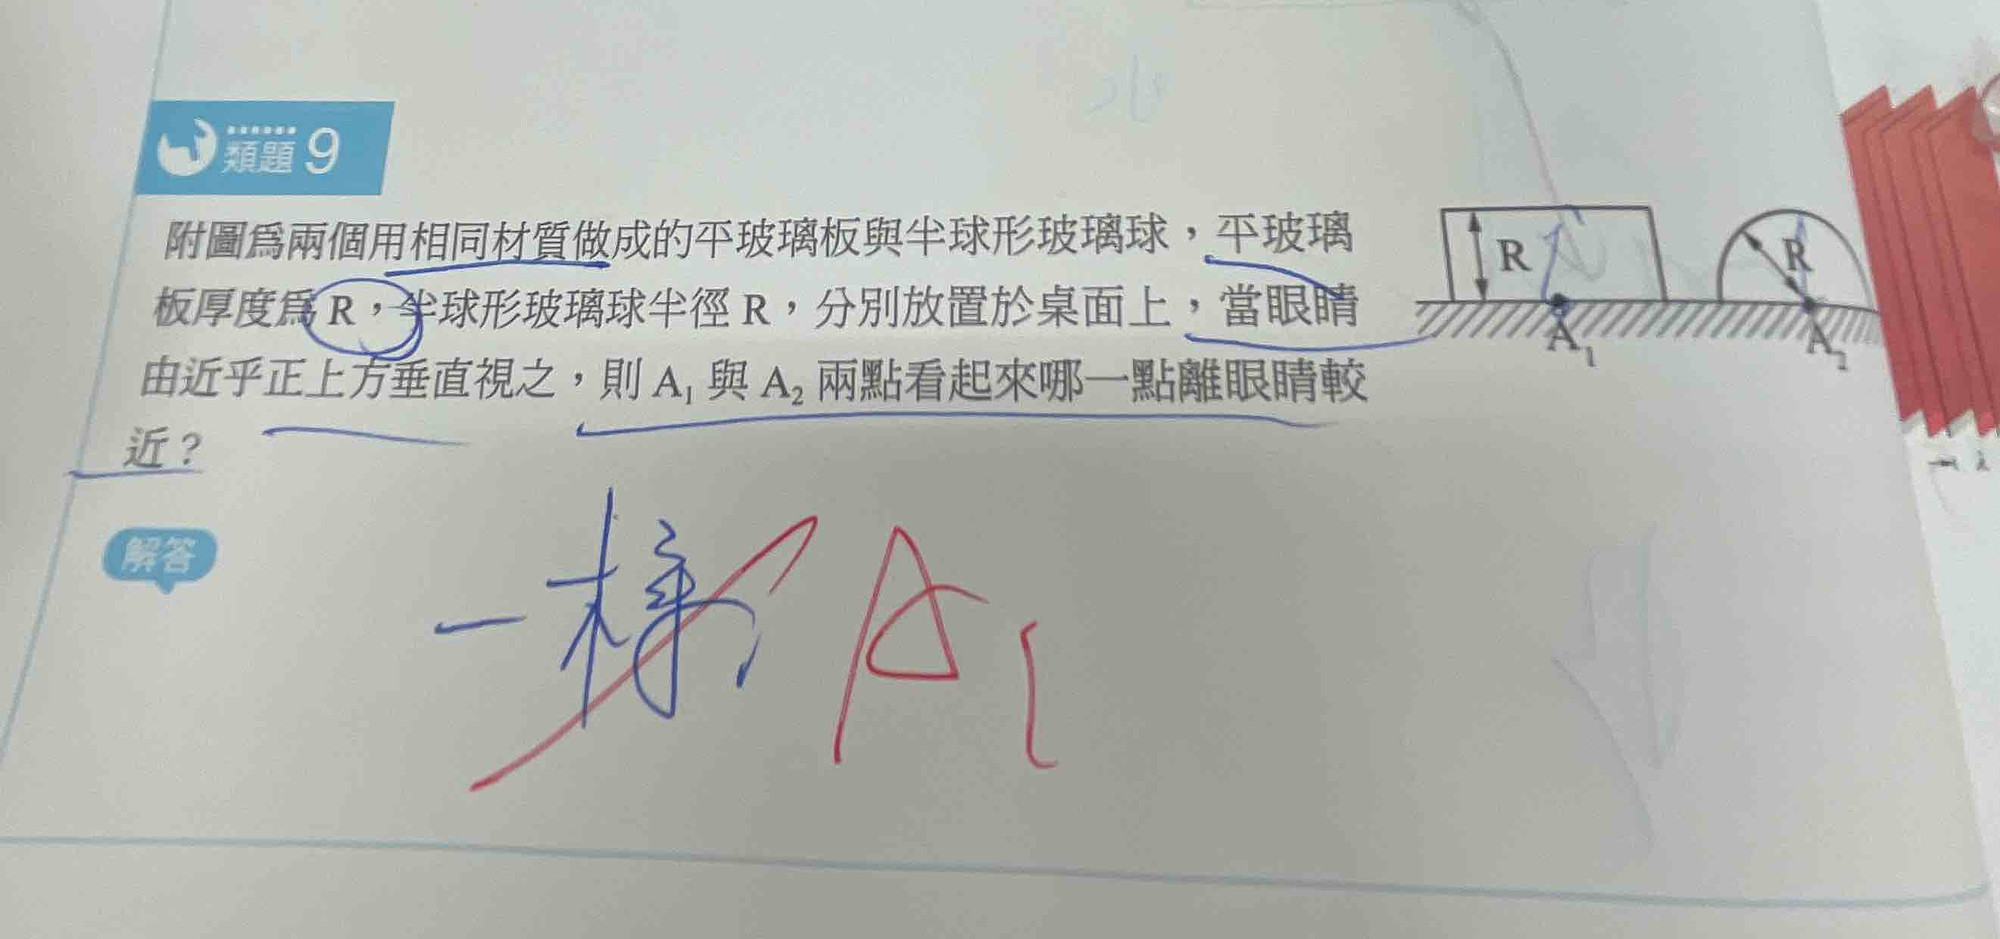 類題 9
附圖為兩個用相同材質做成的平玻璃板與半球形玻璃球，平玻璃
板厚度為 R，半球形玻璃球半徑 R，分別放置於桌面上，當眼睛
由近乎正上方垂直視之，則 A₁ 與 A₂ 兩點看起來哪一點離眼睛較
近？
R
R
A₁
A₂
解答
一樣
A₁